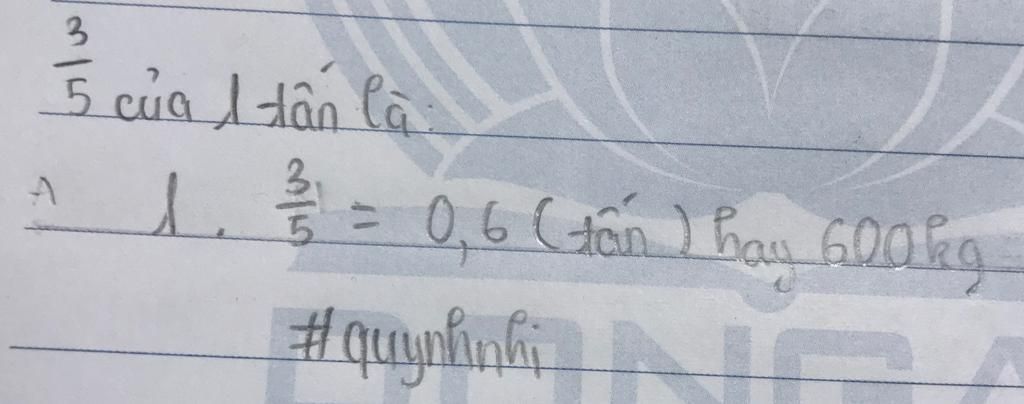 3/5 của 1 tấn là:
1 . 3/5 = 0,6 (tấn) hay 600kg
#quynhnhi